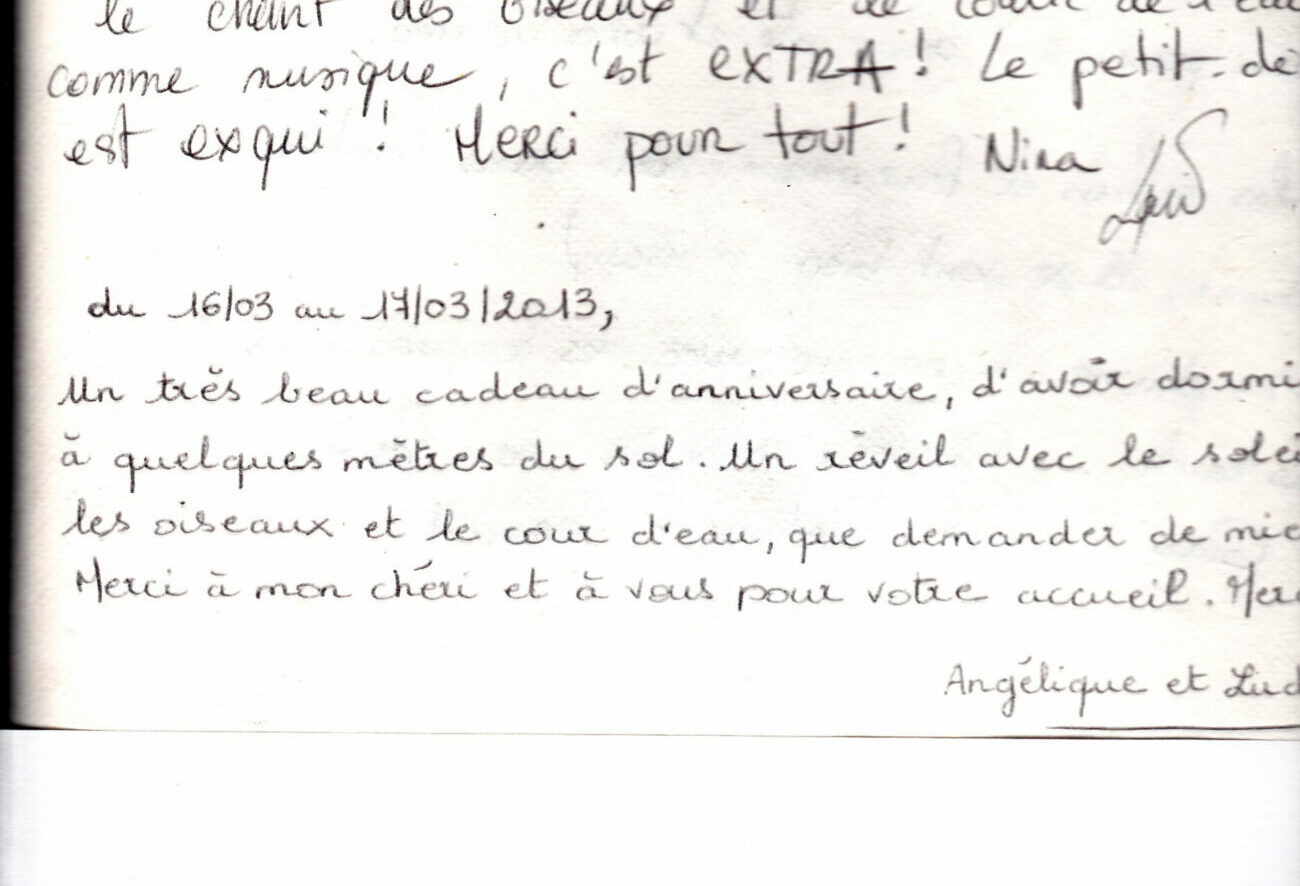 le chant des oiseaux et le
comme musique, c'est EXTRA! Le petit-dé
est exqui! Merci pour tout! Nina
du 16/03 au 17/03/2013,
Un très beau cadeau d'anniversaire, d'avoir dormi
à quelques mètres du sol. Un réveil avec le solei
les oiseaux et le cour d'eau, que demander de mie
Merci à mon chéri et à vous pour votre accueil. Merc
Angélique et Lud